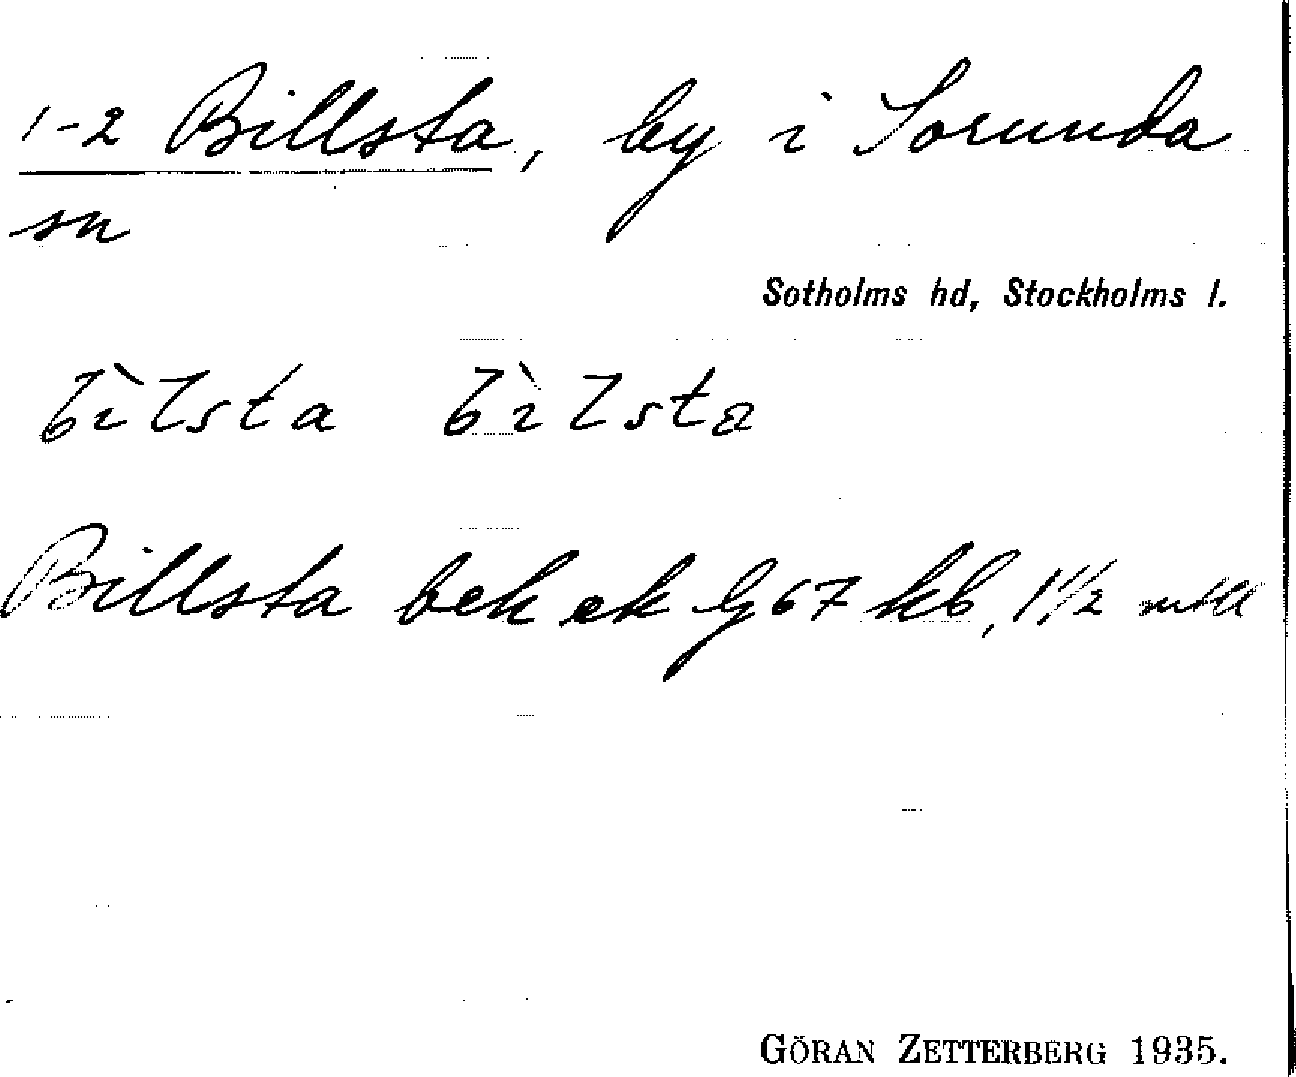 1-2 Billsta, by i Sorunda
sn
Sotholms hd, Stockholms l.
bìlsta bìlsta
Billsta bek ek bg 67 kb, 1 1/2 mtl
GÖRAN ZETTERBERG 1935.